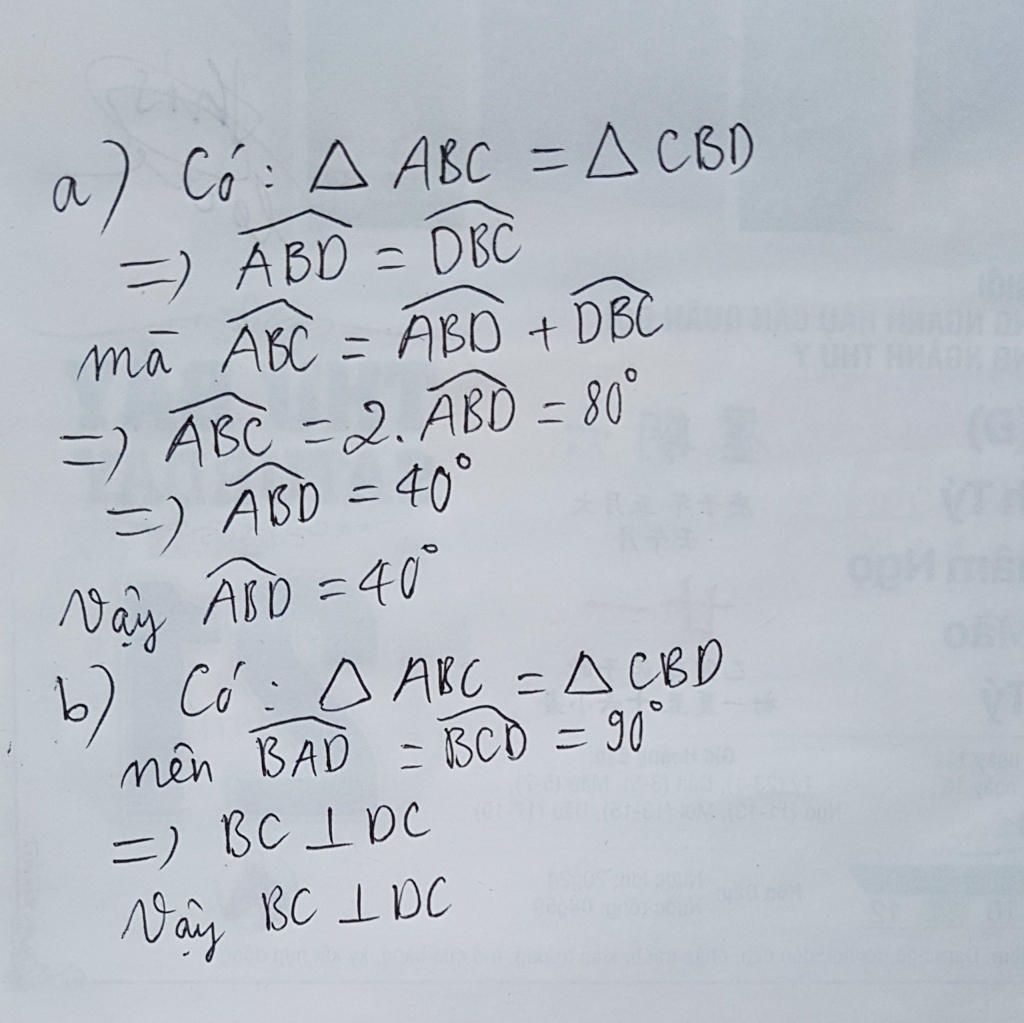 a) Có: △ ABC = △ CBD
=) \widehat{ABD} = \widehat{DBC}
mà \widehat{ABC} = \widehat{ABD} + \widehat{DBC}
=) \widehat{ABC} = 2. \widehat{ABD} = 80°
=) \widehat{ABD} = 40°
Vậy \widehat{ABD} = 40°
b) Có: △ ABC = △ CBD
nên \widehat{BAD} = \widehat{BCD} = 90°
=) BC ⊥ DC
Vậy BC ⊥ DC